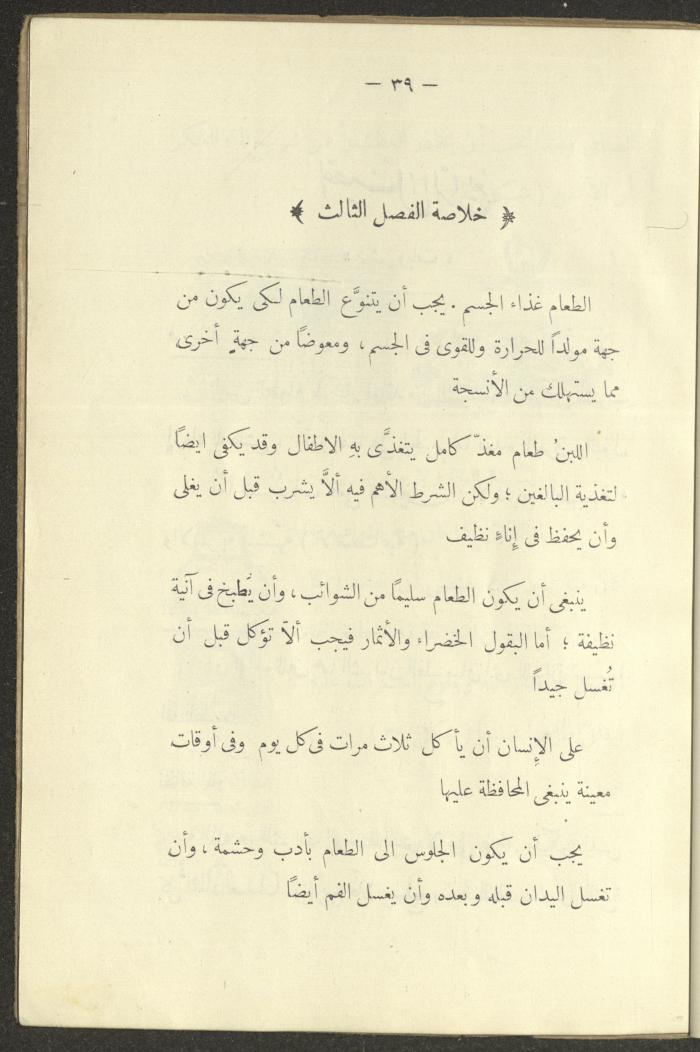 — ٣٩ —
﴿ خلاصة الفصل الثالث ﴾
الطعام غذاء الجسم . يجب أن يتنوَّع الطعام لكى يكون من
جهة مولداً للحرارة وللقوى فى الجسم ، ومعوضاً من جهةٍ أخرى
مما يستهلك من الأنسجة
اللبنُ طعام مغذّ كامل يتغذَّى بهِ الاطفال وقد يكفى ايضًا
لتغذية البالغين ؛ ولكن الشرط الأهم فيه ألاَّ يشرب قبل أن يغلى
وأن يحفظ فى إِناءٍ نظيف
ينبغى أن يكون الطعام سليمًا من الشوائب ، وأن يُطبخ فى آنية
نظيفة ؛ أما البقول الخضراء والأثمار فيجب ألاّ تؤكل قبل أن
تُغسل جيداً
على الإِنسان أن يأكل ثلاث مرات فى كل يوم وفى أوقات
معينة ينبغى المحافظة عليها
يجب أن يكون الجلوس الى الطعام بأدب وحشمة ، وأن
تغسل اليدان قبله وبعده وأن يغسل الفم أيضًا